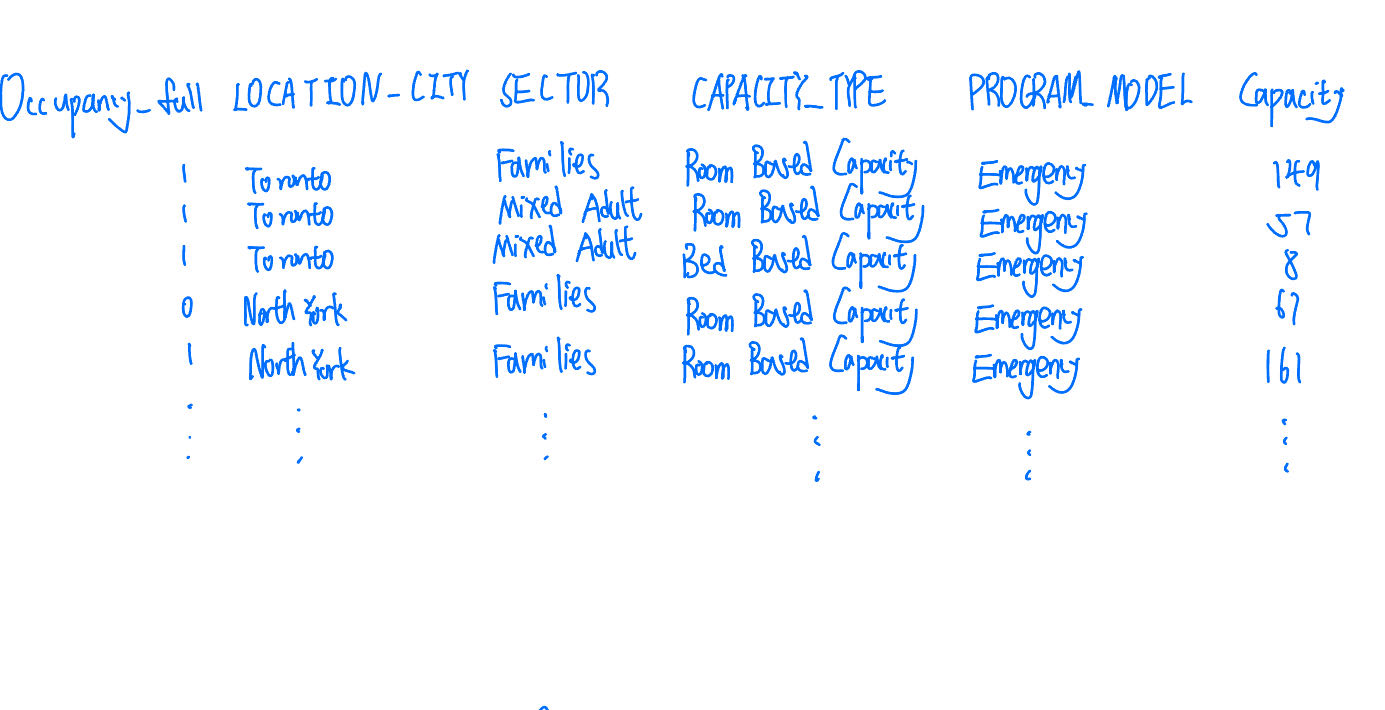 Occupancy_full LOCATION_CITY SECTOR CAPACITY_TYPE PROGRAM_MODEL Capacity
1 Toronto Families Room Based Capacity Emergency 149
1 Toronto Mixed Adult Room Based Capacity Emergency 57
1 Toronto Mixed Adult Bed Based Capacity Emergency 8
0 North York Families Room Based Capacity Emergency 67
1 North York Families Room Based Capacity Emergency 161